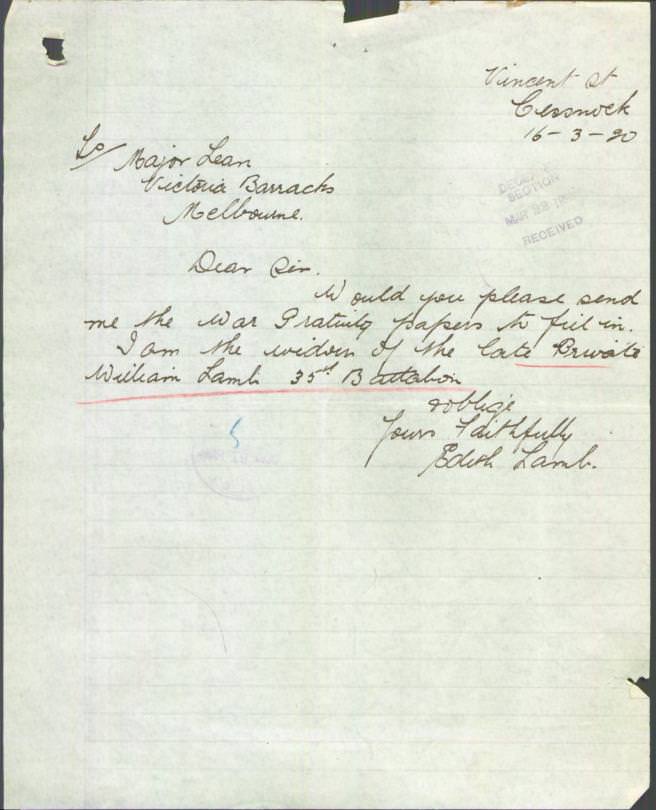 Vincent St
Cessnock
16-3-20
To/ Major Lean
Victoria Barracks
Melbourne.
Dear Sir.
Would you please send
me the War Gratuity papers to fill in.
I am the widow of the late Private
William Lamb 35th Battalion
&oblige
Yours Faithfully
Edith Lamb.
SECTION
MAR 22
RECEIVED
5